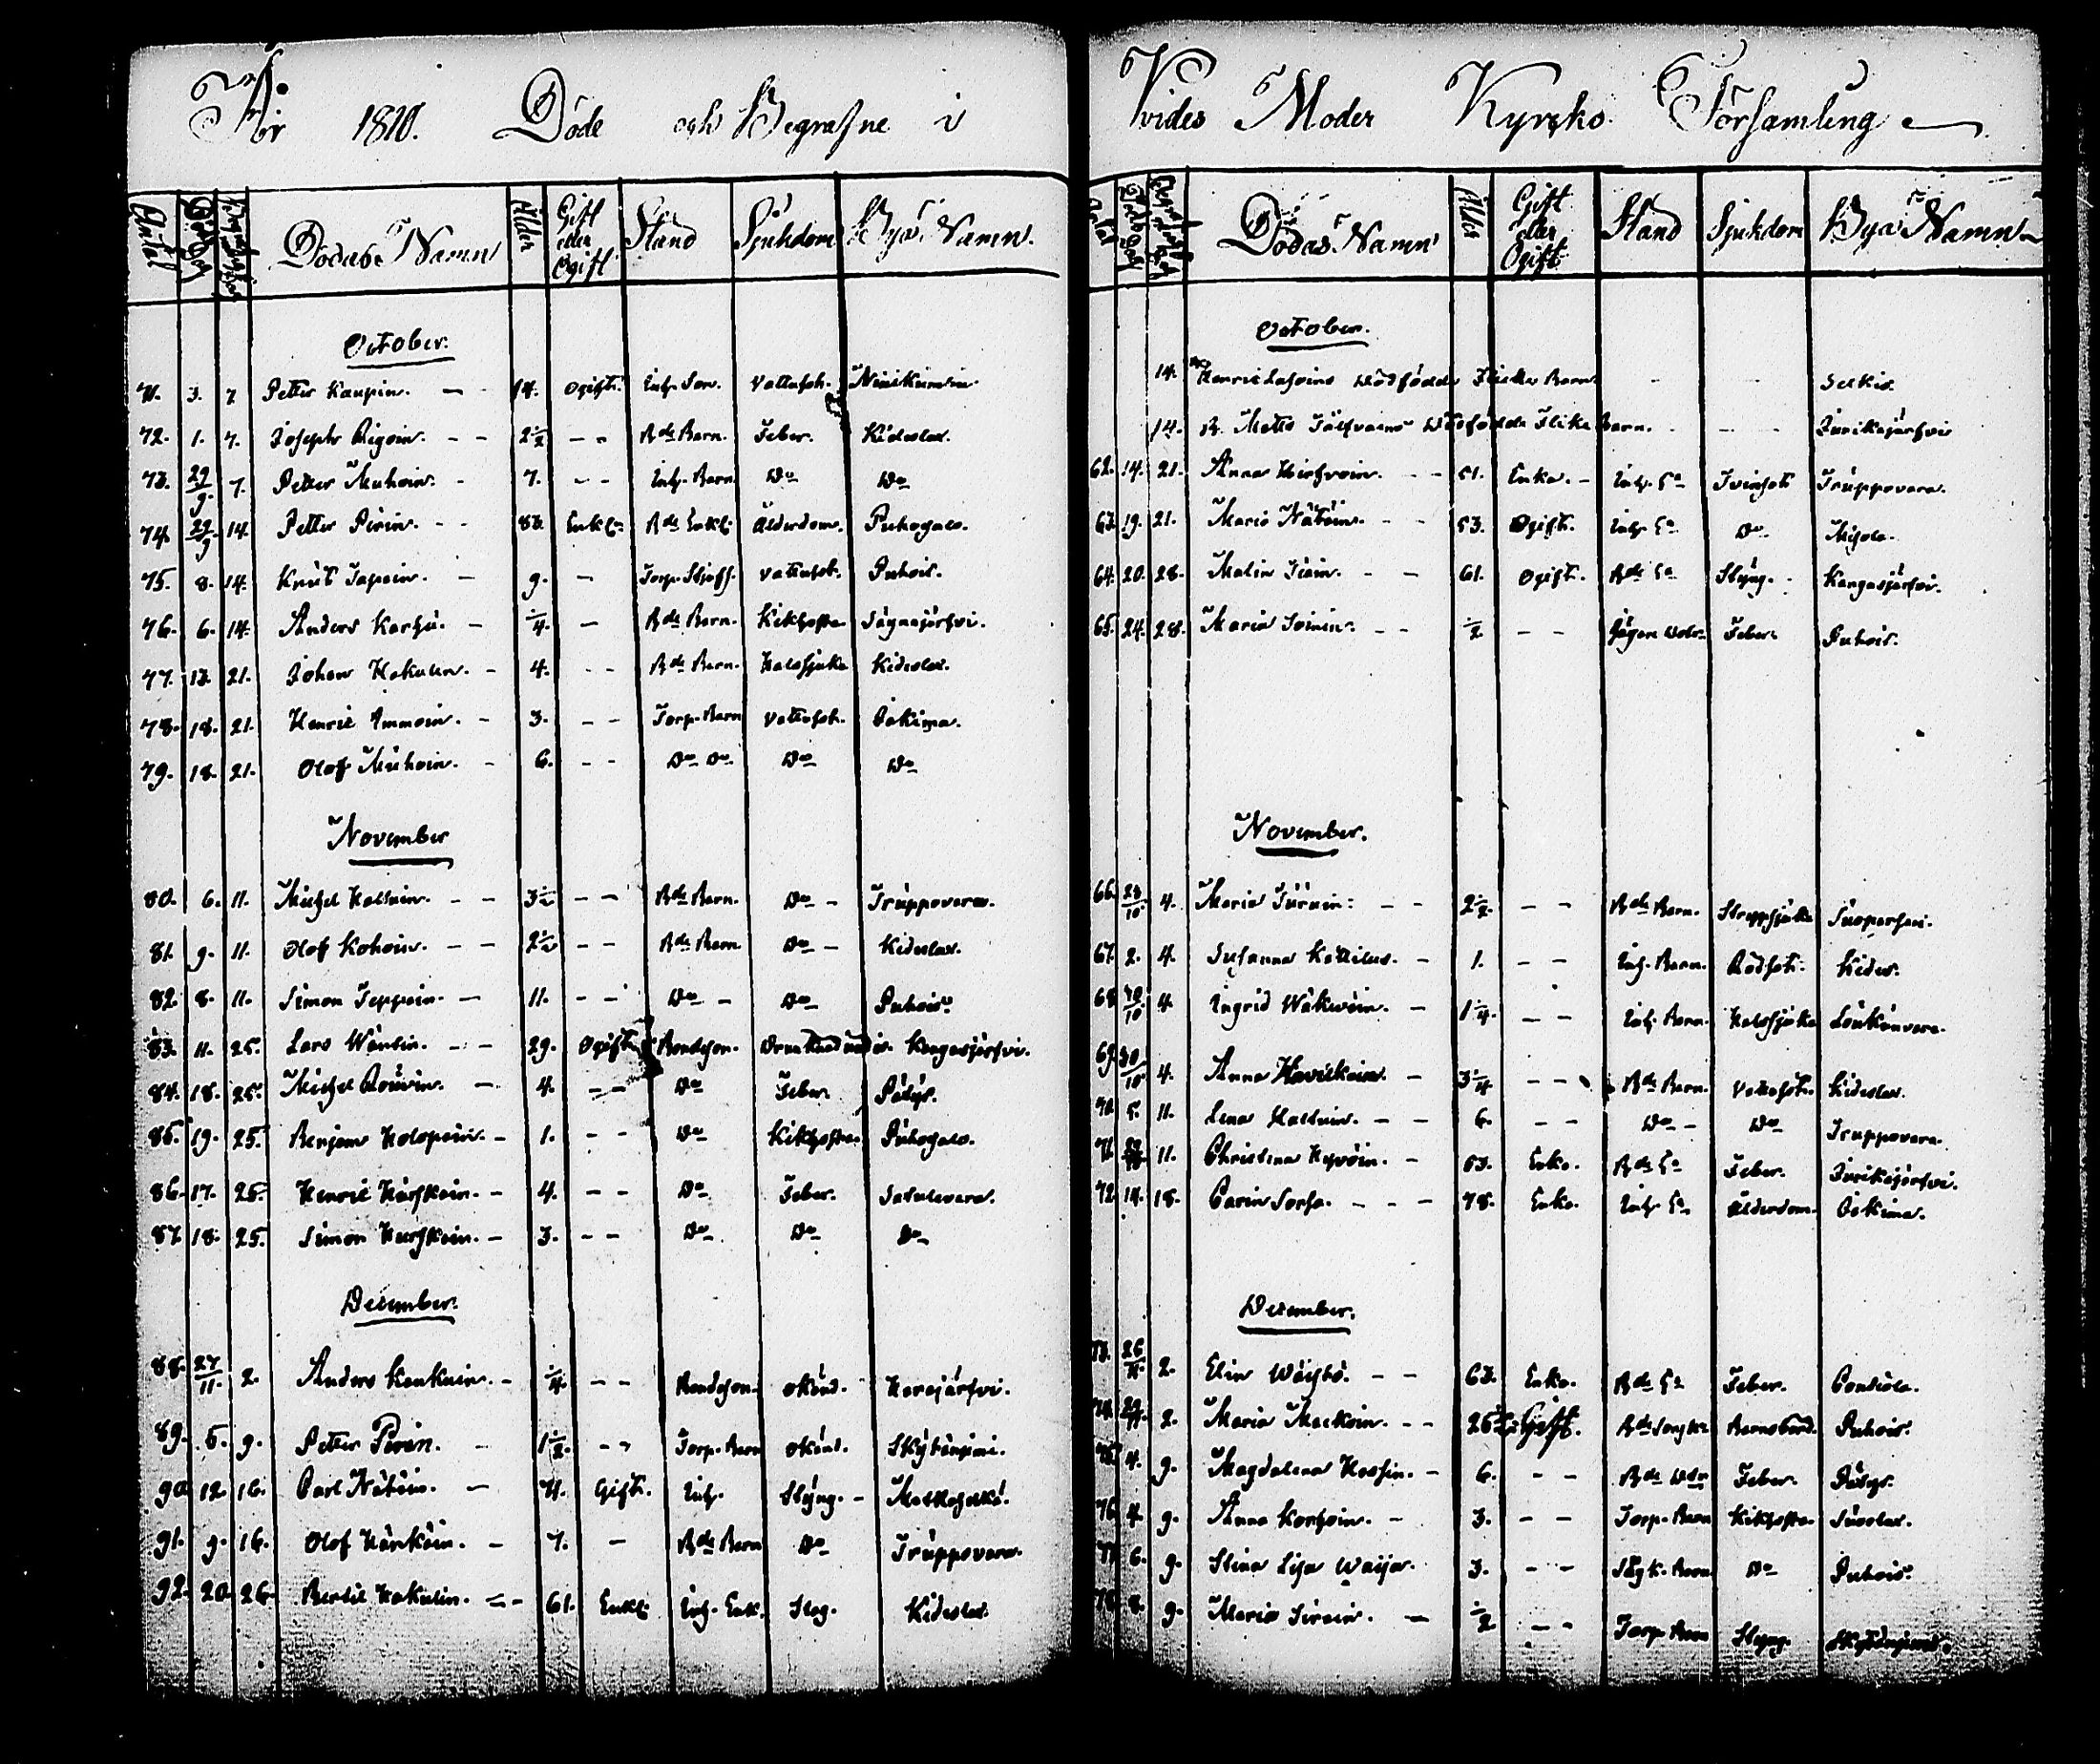 År 1810. Döde och Begrafne i
Antal Gift eller Ogift Ålder Dödas Namn Stånd Sjukdom Byä Namn.
October.
71. 3. 7. Petter Kaupin. — 14. Ogift. Inh. Son. Vattusot. Niinikumbu
72. 1. 7. Joseph Rigoin. - - 2½ - - Bde Barn. Feber. Kideslax.
73. 29/9. 7. Petter Muhoin. - 7. - - Inh. Barn Do Do
74. 29/9. 14. Petter Pirin. - - 83. Enkl. Bde Enkl. Ålderdom. Puhogalo.
75. 8. 14. Knut Tapain. — 9. — Torp. Vattusot. Puhois.
76. 6. 14. Anders Karhu. - ¼. — Bde Barn. Kikhosta Sägnajärfvi.
77. 13. 21. Johan Hakulin. - 4. - - Bde Barn. Halssjuka Kideslax.
78. 18. 21. Henric Ammoin. - 3. - - Torp. Barn Vattusot. Jokima.
79. 18. 21. Olof Muhoin. - 6. - - Do Do Do Do
November
80. 6. 11. Michel Halluin. - - 3½ - - Bde Barn. Do - Truppovara.
81. 9. 11. Olof Kohoin. - - 2½ - - Bde Barn Do - Kideslax.
82. 8. 11. Simon Teppoin. — 11. - - Do - Do Puhois.
83. 11. 25. Lars Wänlin. - - 29. Ogift Bondeson. Kangasjärfvi.
84. 18. 25. Michel Rouvin. — 4. - - Do Feber. Pötys.
85. 19. 25. Benjam Holopain. - 1. - - Do Kikhosta. Puhogalo.
86. 17. 25. Henric Härskoin. - 4. - - Do Feber. Satulavara.
87. 18. 25. Simon Hurskain. - 3. - - Do Do Do
December.
88. 27/11. 2. Anders Kankuin. - ¼. - - Bondeson. Okänd. Harajärfvi.
89. 5. 9. Petter Pirin. - 1½. - - Torp. Barn Okänd.
90. 12. 16. Carl Nätin. — 71. Gift. Inh. Styng. - Matkaselkä.
91. 9. 16. Olof Hänkäin. - 7. - Bde Barn Do Truppovara.
92. 20. 26. Bertil Hakulin. - - 61. Enkl. Inh. Enk. Slag. Kideslax.
Kides Moder Kyrcko Församling
Antal Ålder Dödas Namn Gift eller Ogift Stånd Sjukdom Byä Namn
October.
14. Henric Lasoins Dödfödda Flicke Barn. - - Selkis.
14. B. Matts Dödfödda Flicke Barn. - - - Juurikajärfvi
62. 14. 21. Anna Hirfvoin. - - 51. Enka. - Inh. Truppovara.
63. 19. 21. Maria Nätin. - - 53. Ogift. Inh. Do
64. 20. 28. Malin - - 61. Ogift. Bde Styng. Kangasjärfvi.
65. 24. 28. Maria Soinin. - - ½ - - Feber. Puhois.
November.
66. 28/10. 4. Maria Turuin: - - 2½. - - Bde Barn.
67. 2. 4. Susanna Kettilus. - 1. - - Inh. Barn. Rödsot. Kides.
68. 30/10. 4. Ingrid Wäkewäin. - 1¼. - - Inh. Barn. Halssjuka
69. 30/10. 4. Anna - 3¼ - - Bde Barn. Vattusot. Kideslax.
70. 5. 11. Lena Halluin. - - 6. - - Do - Do Truppovara.
71. 11. Christina Hyvöin. - 53. Enka. Bde Feber. Juurikajärfvi.
72. 14. 18. Carin Sorsa. - - - 78. Enka. Inh. Ålderdom. Jokima.
December.
73. 26/11. 2. Elin Wäistö. - - 63. Enka. Bde Feber. Pontiola.
74. 2. Maria Mackoin. - - 26 Gift. Barnsbörd. Puhois.
75. 4. 9. Magdalena Kossin. - 6. - - Bde Feber. Pötys.
76. 4. 9. Anna Korhoin. - 3. - - Torp. Barn Kikhosta. Suorlax.
77. 6. 9. Stina Lisa Waija. 3. - - Barn Do Puhois.
78. 8. 9. Maria Sirain. — ½ - - Torp. Barn Styng.